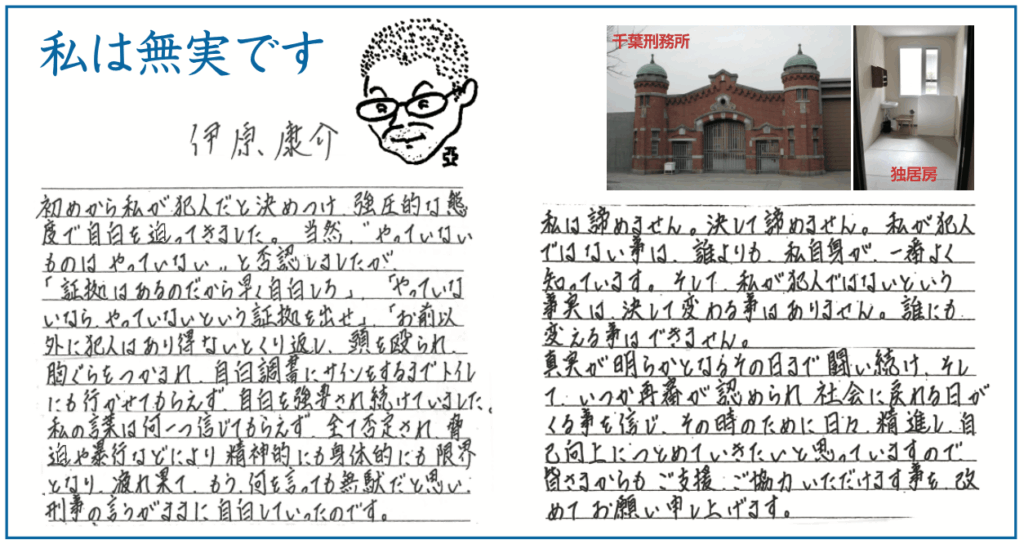 私は無実です
伊原康介
亞
初めから私が犯人だと決めつけ、強圧的な態
度で自白を迫ってきました。当然、“やっていない
ものはやっていない„と否認しましたが、
「証拠はあるのだから早く自白しろ」、「やっていな
いなら、やっていないという証拠を出せ」、「お前以
外に犯人はあり得ないとくり返し、頭を殴られ、
胸ぐらをつかまれ、自白調書にサインをするまでトイレ
にも行かせてもらえず、自白を強要され続けていました。
私の言葉は何一つ信じてもらえず、全て否定され、脅
迫や暴行などにより精神的にも身体的にも限界
となり、疲れ果て、もう、何を言っても無駄だと思い、
刑事の言うがままに自白していったのです。
千葉刑務所
独居房
私は諦めません。決して諦めません。私が犯人
ではない事は、誰よりも、私自身が、一番よく
知っています。そして、私が犯人ではないという
事実は、決して変わる事はありません。誰にも
変える事はできません。
真実が明らかとなるその日まで闘い続け、そし
て、いつか再審が認められ、社会に戻れる日が
くる事を信じ、その時のために日々、精進し、自
己向上につとめていきたいと思っていますので、
皆さまからもご支援、ご協力いただけます事を、改
めてお願い申し上げます。